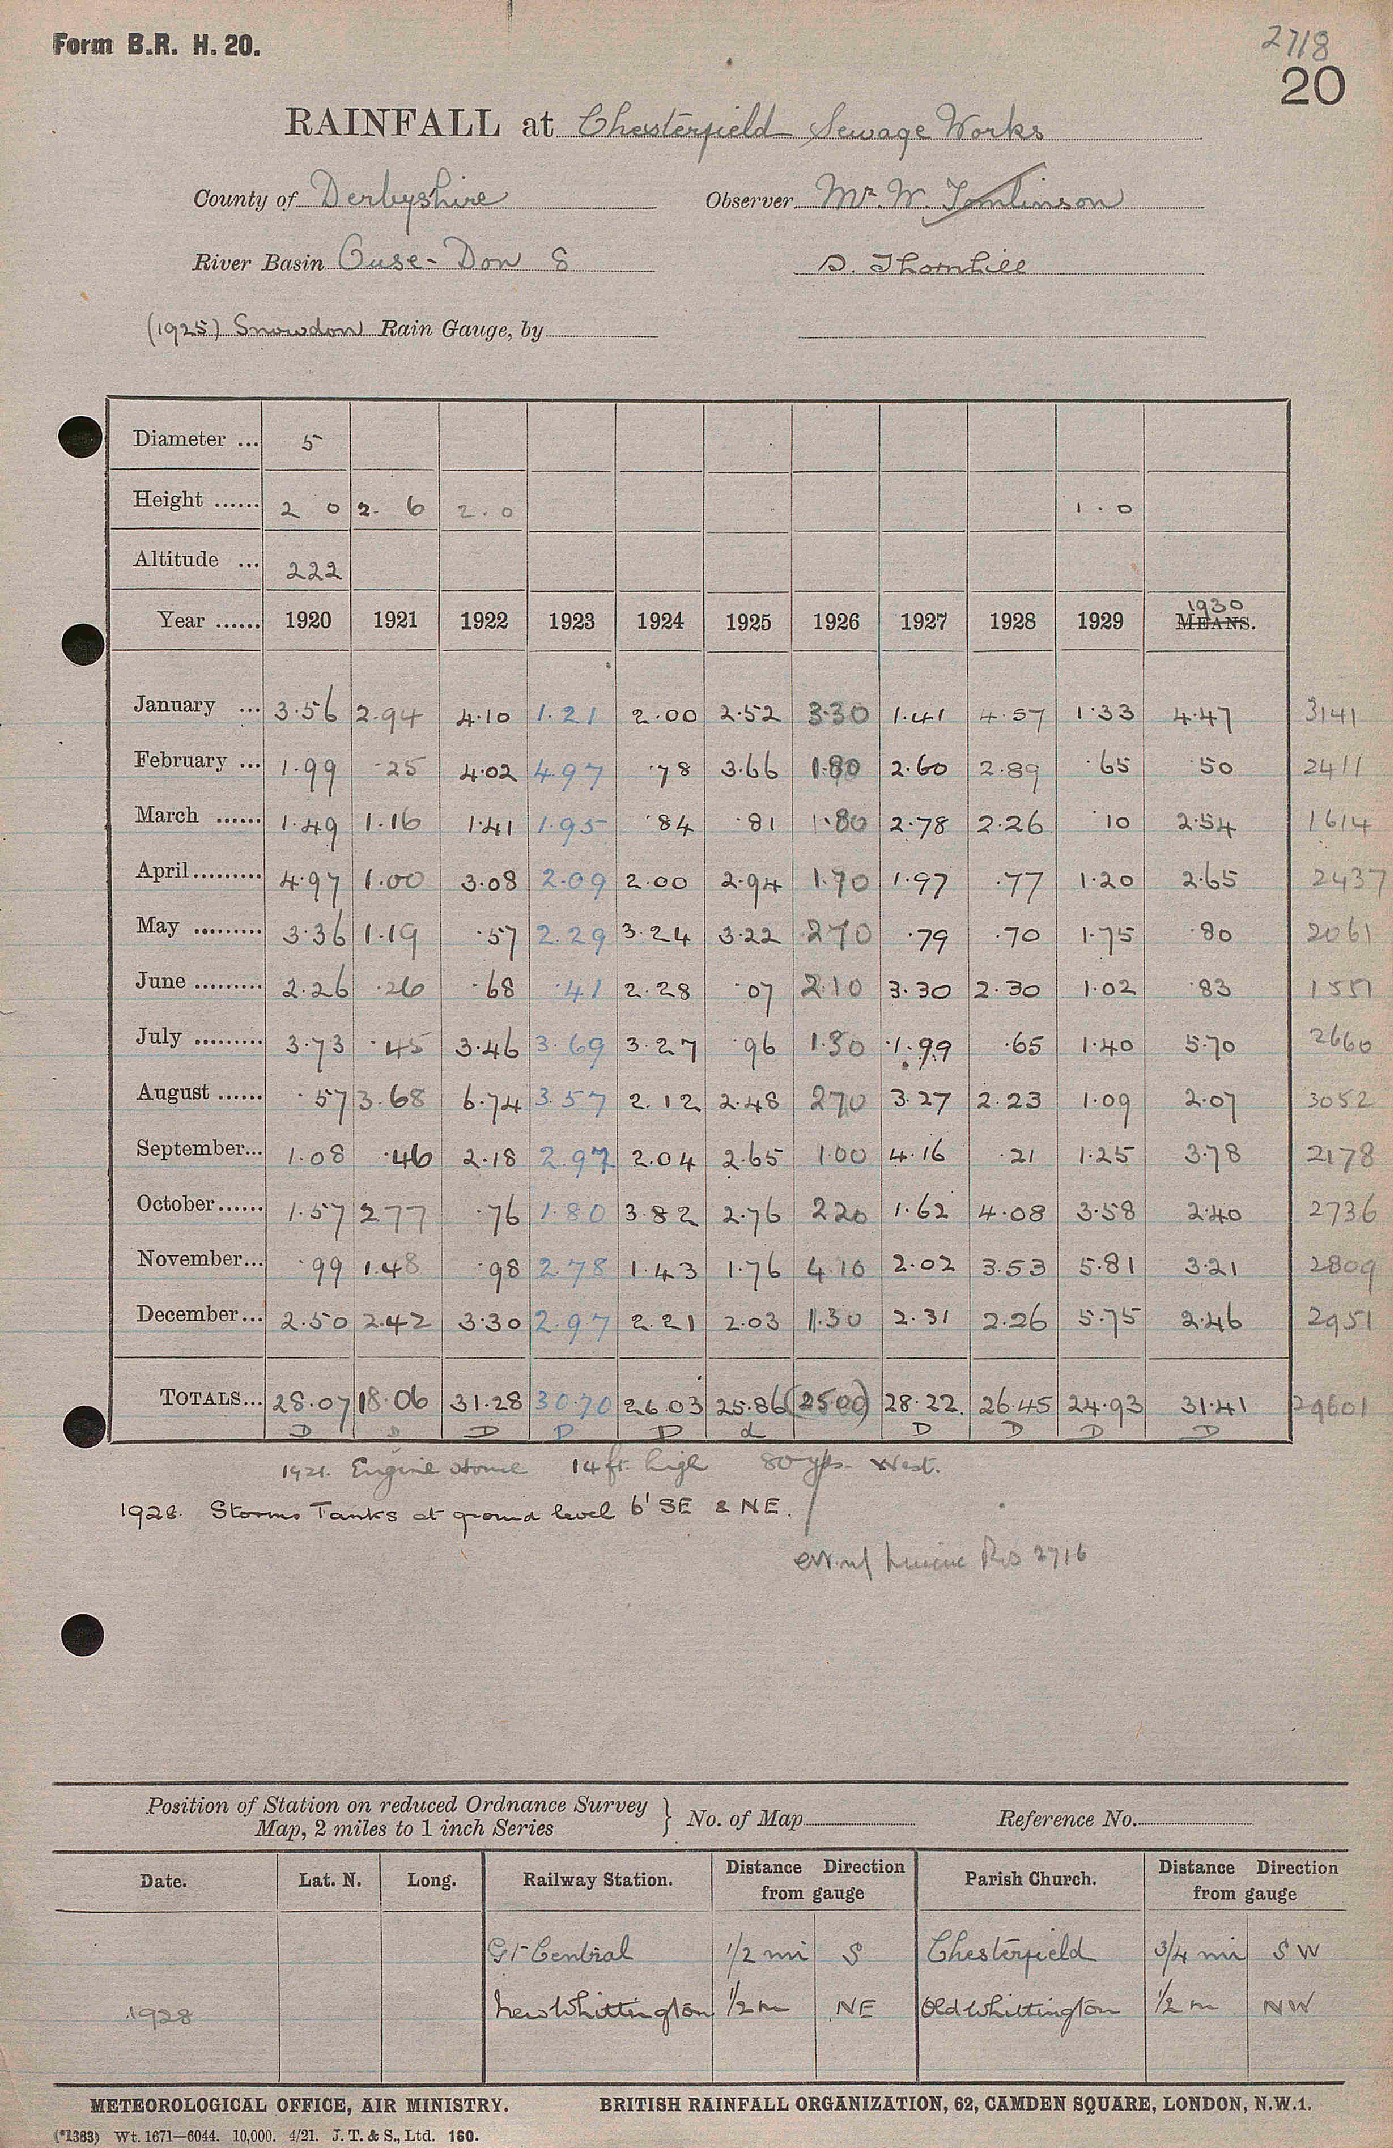 Form B.R. H. 20.
2718
20
RAINFALL at Chesterfield Sewage Works
County of Derbyshire Observer Mr. W. Tomlinson
River Basin Ouse - Don S S. Thornhill
(1925) Snowdon Rain Gauge, by
Diameter ... 5
Height ...... 2 0 2. 6 2.0 1.0
Altitude ... 222
Year ...... 1920 1921 1922 1923 1924 1925 1926 1927 1928 1929 1930 MEANS.
January ... 3.56 2.94 4.10 1.21 2.00 2.52 3.30 1.41 4.57 1.33 4.47 3141
February ... 1.99 .25 4.02 4.97 .78 3.66 1.80 2.60 2.89 .65 .50 2411
March ...... 1.49 1.16 1.41 1.95 .84 .81 1.80 2.78 2.26 .10 2.54 1614
April ......... 4.97 1.00 3.08 2.09 2.00 2.94 1.70 1.97 .77 1.20 2.65 2437
May ......... 3.36 1.19 .57 2.29 3.24 3.22 2.70 .79 .70 1.75 .80 2061
June ......... 2.26 .26 .68 .41 2.28 .07 2.10 3.30 2.30 1.02 .83 1551
July ......... 3.73 .45 3.46 3.69 3.27 .96 1.30 1.99 .65 1.40 5.70 2660
August ...... .57 3.68 6.74 3.57 2.12 2.48 270 3.27 2.23 1.09 2.07 3052
September... 1.08 .46 2.18 2.97 2.04 2.65 1.00 4.16 .21 1.25 3.78 2178
October ...... 1.57 2.77 .76 1.80 3.82 2.76 2.20 1.62 4.08 3.58 2.40 2736
November... .99 1.48 .98 2.78 1.43 1.76 4.10 2.02 3.53 5.81 3.21 2809
December... 2.50 2.42 3.30 2.97 2.21 2.03 1.30 2.31 2.26 5.75 2.46 2951
TOTALS... 28.07 18.06 31.28 30.70 26.03 25.86 (25.00) 28.22 26.45 24.93 31.41 29601
D D D D D d D D D D
1921. Engine House 14 ft. high 80 yds. West.
1928. Storms Tanks at ground level 6' SE & NE.
2716
Position of Station on reduced Ordnance Survey Map, 2 miles to 1 inch Series } No. of Map Reference No.
Date. Lat. N. Long. Railway Station. Distance Direction from gauge Parish Church. Distance Direction from gauge
Gt Central 1/2 mi S Chesterfield 3/4 mi SW
1928 New Whittington 1/2 m NE Old Whittington 1/2 m NW
METEOROLOGICAL OFFICE, AIR MINISTRY. BRITISH RAINFALL ORGANIZATION, 62, CAMDEN SQUARE, LONDON, N.W.1.
(*1383) Wt. 1671—6044. 10,000. 4/21. J. T. & S., Ltd. 160.